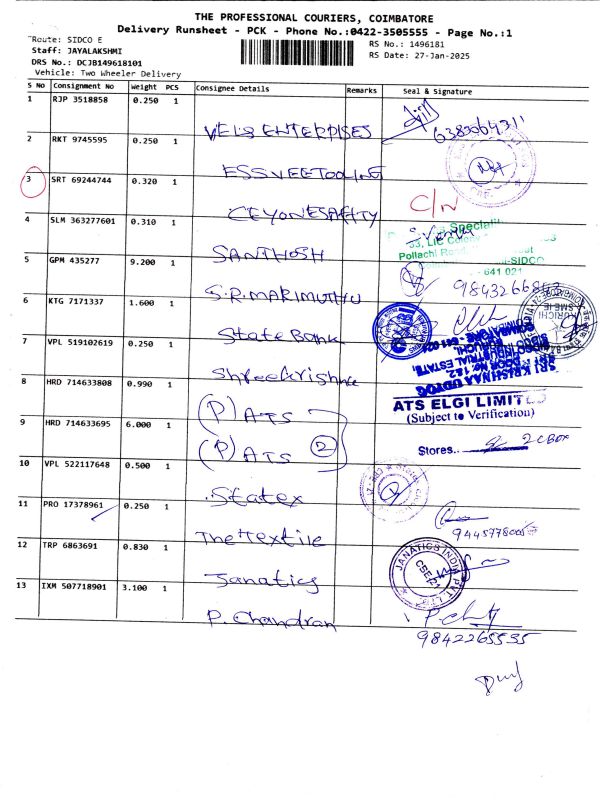 THE PROFESSIONAL COURIERS, COIMBATORE
Delivery Runsheet - PCK - Phone No.:0422-3505555 - Page No.:1
Route: SIDCO E
RS No.: 1496181
Staff: JAYALAKSHMI
RS Date: 27-Jan-2025
DRS No.: DCJB149618101
Vehicle: Two Wheeler Delivery
S No Consignment No Weight PCS Consignee Details Remarks Seal & Signature
1 RJP 3518858 0.250 1 VELS ENTERPRISES
2 RKT 9745595 0.250 1 ESSVEETOOLING
3 SRT 69244744 0.320 1 CEYONESAFETY C/N
4 SLM 363277601 0.310 1 SANTHOSH
Pollachi
-SIDCO
641 021
5 GPM 435277 9.200 1 S.R.MARIMUTHU
6 KTG 7171337 1.600 1 State Bank
7 VPL 519102619 0.250 1 Shreekrishna
SRI KRISHNAA UDYOG
DOOR No: 1&2,
INDUSTRIAL ESTATE,
8 HRD 714633808 0.990 1 (P) ATS
ATS ELGI LIMITED
(Subject to Verification)
9 HRD 714633695 6.000 1 (P) ATS 2
Stores.. 2 CBOX
10 VPL 522117648 0.500 1 Statex
11 PRO 17378961 0.250 1 The Textile
12 TRP 6863691 0.830 1 Janatics
JANATICS INDIA PVT. LTD
13 IXM 507718901 3.100 1 P. Chandran
9842265535